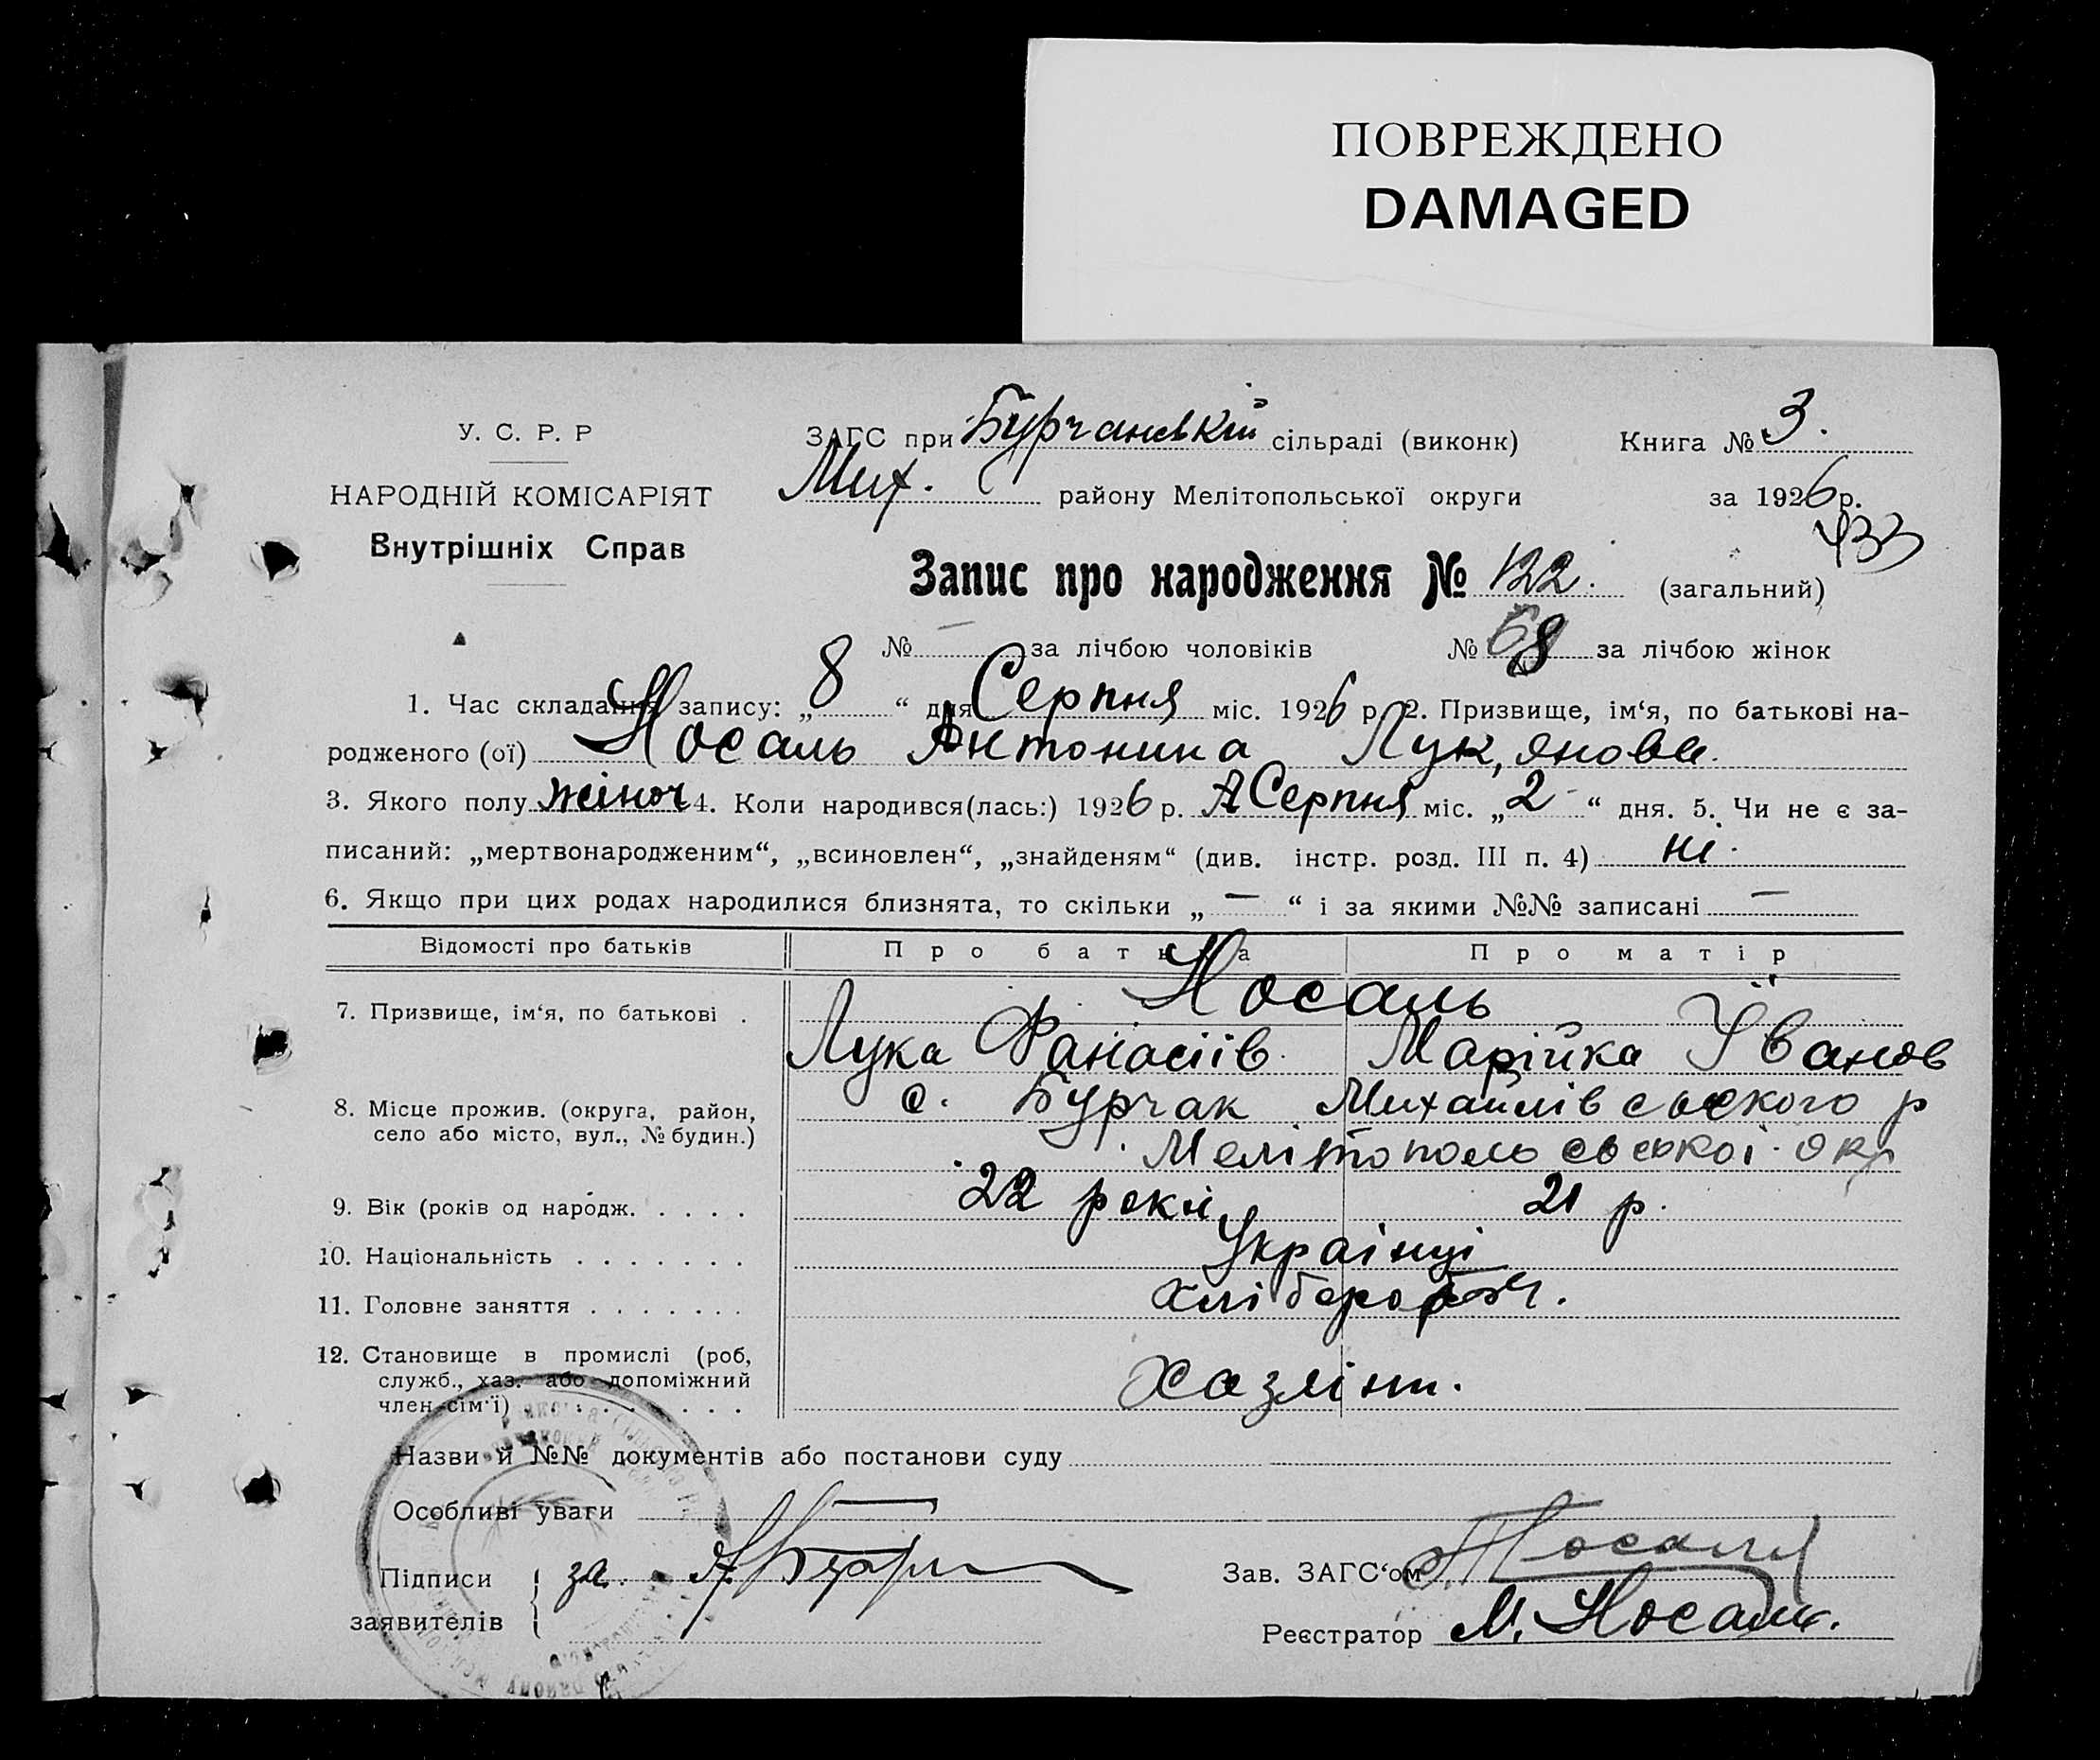 ПОВРЕЖДЕНО
DAMAGED
У. С. Р. Р
НАРОДНІЙ КОМІСАРІЯТ
Внутрішніх Справ
ЗАГС при Бурчанській сільраді (виконк) Книга № 3.
Мих. району Мелітопольської округи за 1926 р.
433
Запис про народження № 122. (загальний)
№ — за лічбою чоловіків № 68 за лічбою жінок
1. Час складання запису: „ 8 “ дня Серпня міс. 1926 р. 2. Призвище, ім‘я, по батькові на-
родженого (ої) Носаль Антонина Лук,янова.
3. Якого полу жіноч 4. Коли народився(лась:) 1926 р. Серпня міс. „ 2 “ дня. 5. Чи не є за-
писаний: „мертвонародженим“, „всиновлен“, „знайденям“ (див. інстр. розд. III п. 4) ні.
6. Якщо при цих родах народилися близнята, то скільки „ — “ і за якими №№ записані —
Відомості про батьків Про батька Про матір
Носаль
7. Призвище, ім‘я, по батькові .
Лука Фанасіїв. Марійка Їванов
с. Бурчак Михайлівського р
8. Місце прожив. (округа, район,
село або місто, вул., № будин.)
Мелітопольської окр
9. Вік (років од народж. . . . . 22 роки 21 р.
10. Національність . . . . . . . Українці
11. Головне заняття . . . . . . . хлібороб
12. Становище в промислі (роб,
служб., хаз. або допоміжний
член сім‘ї) . . . . . . . . .
Назви й №№ документів або постанови суду
Особливі уваги —
Підписи за. Зав. ЗАГС‘ом Носаль
заявителів Реєстратор М. Носаль.